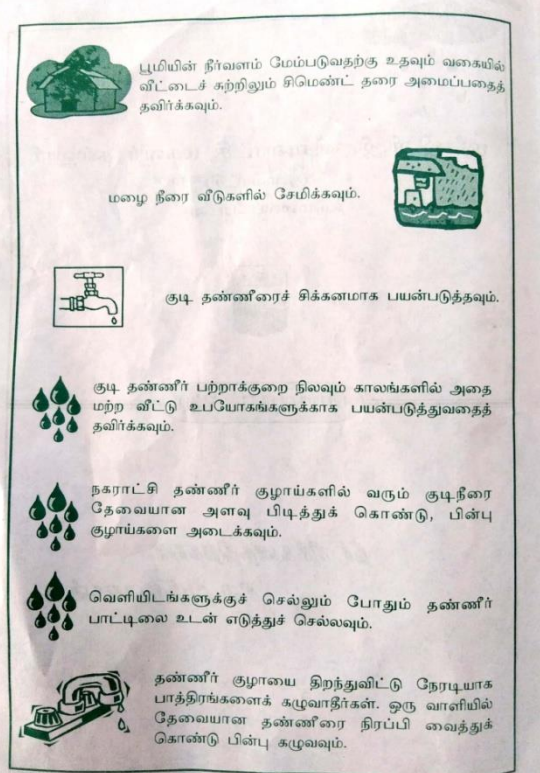 பூமியின் நீர்வளம் மேம்படுவதற்கு உதவும் வகையில்
வீட்டைச் சுற்றிலும் சிமெண்ட் தரை அமைப்பதைத்
தவிர்க்கவும்.
மழை நீரை வீடுகளில் சேமிக்கவும்.
குடி தண்ணீரைச் சிக்கனமாக பயன்படுத்தவும்.
குடி தண்ணீர் பற்றாக்குறை நிலவும் காலங்களில் அதை
மற்ற வீட்டு உபயோகங்களுக்காக பயன்படுத்துவதைத்
தவிர்க்கவும்.
நகராட்சி தண்ணீர் குழாய்களில் வரும் குடிநீரை
தேவையான அளவு பிடித்துக் கொண்டு, பின்பு
குழாய்களை அடைக்கவும்.
வெளியிடங்களுக்குச் செல்லும் போதும் தண்ணீர்
பாட்டிலை உடன் எடுத்துச் செல்லவும்.
தண்ணீர் குழாயை திறந்துவிட்டு நேரடியாக
பாத்திரங்களைக் கழுவாதீர்கள். ஒரு வாளியில்
தேவையான தண்ணீரை நிரப்பி வைத்துக்
கொண்டு பின்பு கழுவவும்.